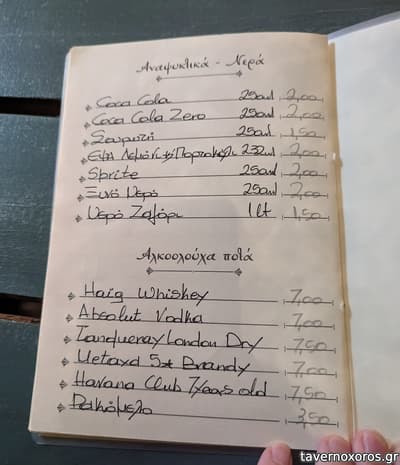 Αναψυκτικά - Νερά
Coca Cola 250ml 2,00
Coca Cola Zero 250ml 2,00
Σουρωτή 250ml 1,50
Εψα Λεμόνι/Πορτοκάλι 232ml 2,00
Sprite 250ml 2,00
Ξυνό Νερό 250ml 2,00
Νερό Ζαγόρι 1lt 1,50
Αλκοολούχα ποτά
Haig Whiskey 7,00
Absolut Vodka 7,00
Tanqueray London Dry 7,50
Metaxa 5* Brandy 7,00
Havana Club 7years old 7,50
Ρακόμελο 3,50
tavernoxoros.gr